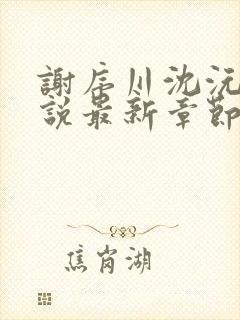 謝辰川沈沅
說最新章節
焦岗湖